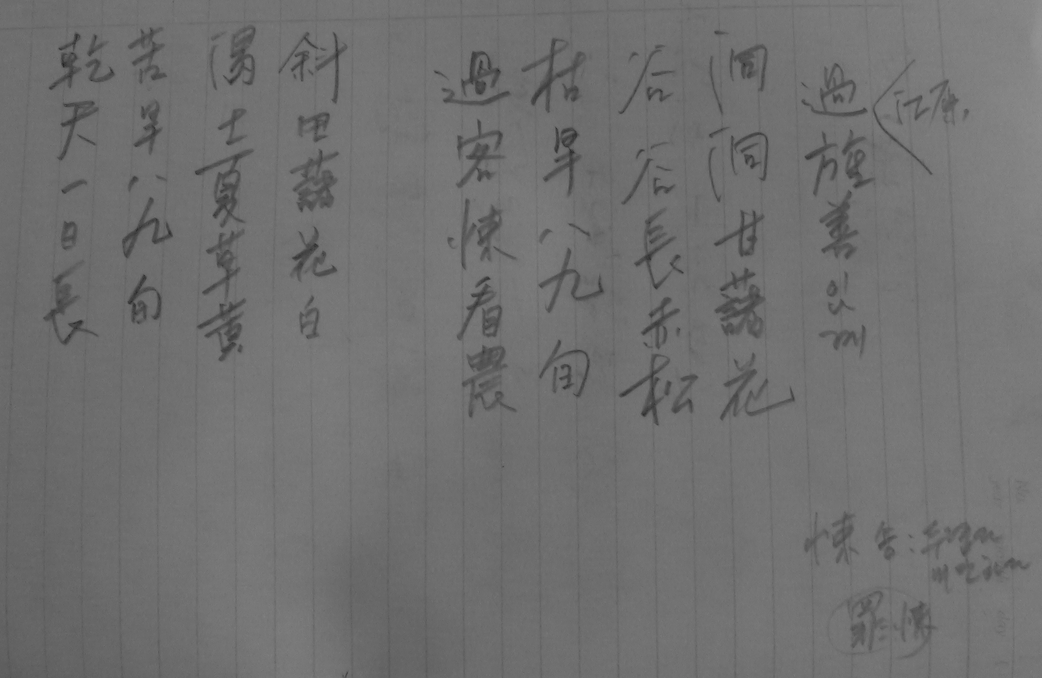 江原
過旌善
洞洞甘藷花
谷谷長赤松
枯旱八九旬
過客悚看農
斜田藷花白
渴土夏草黃
苦旱八九旬
乾天一日長
悚 송:
罪悚